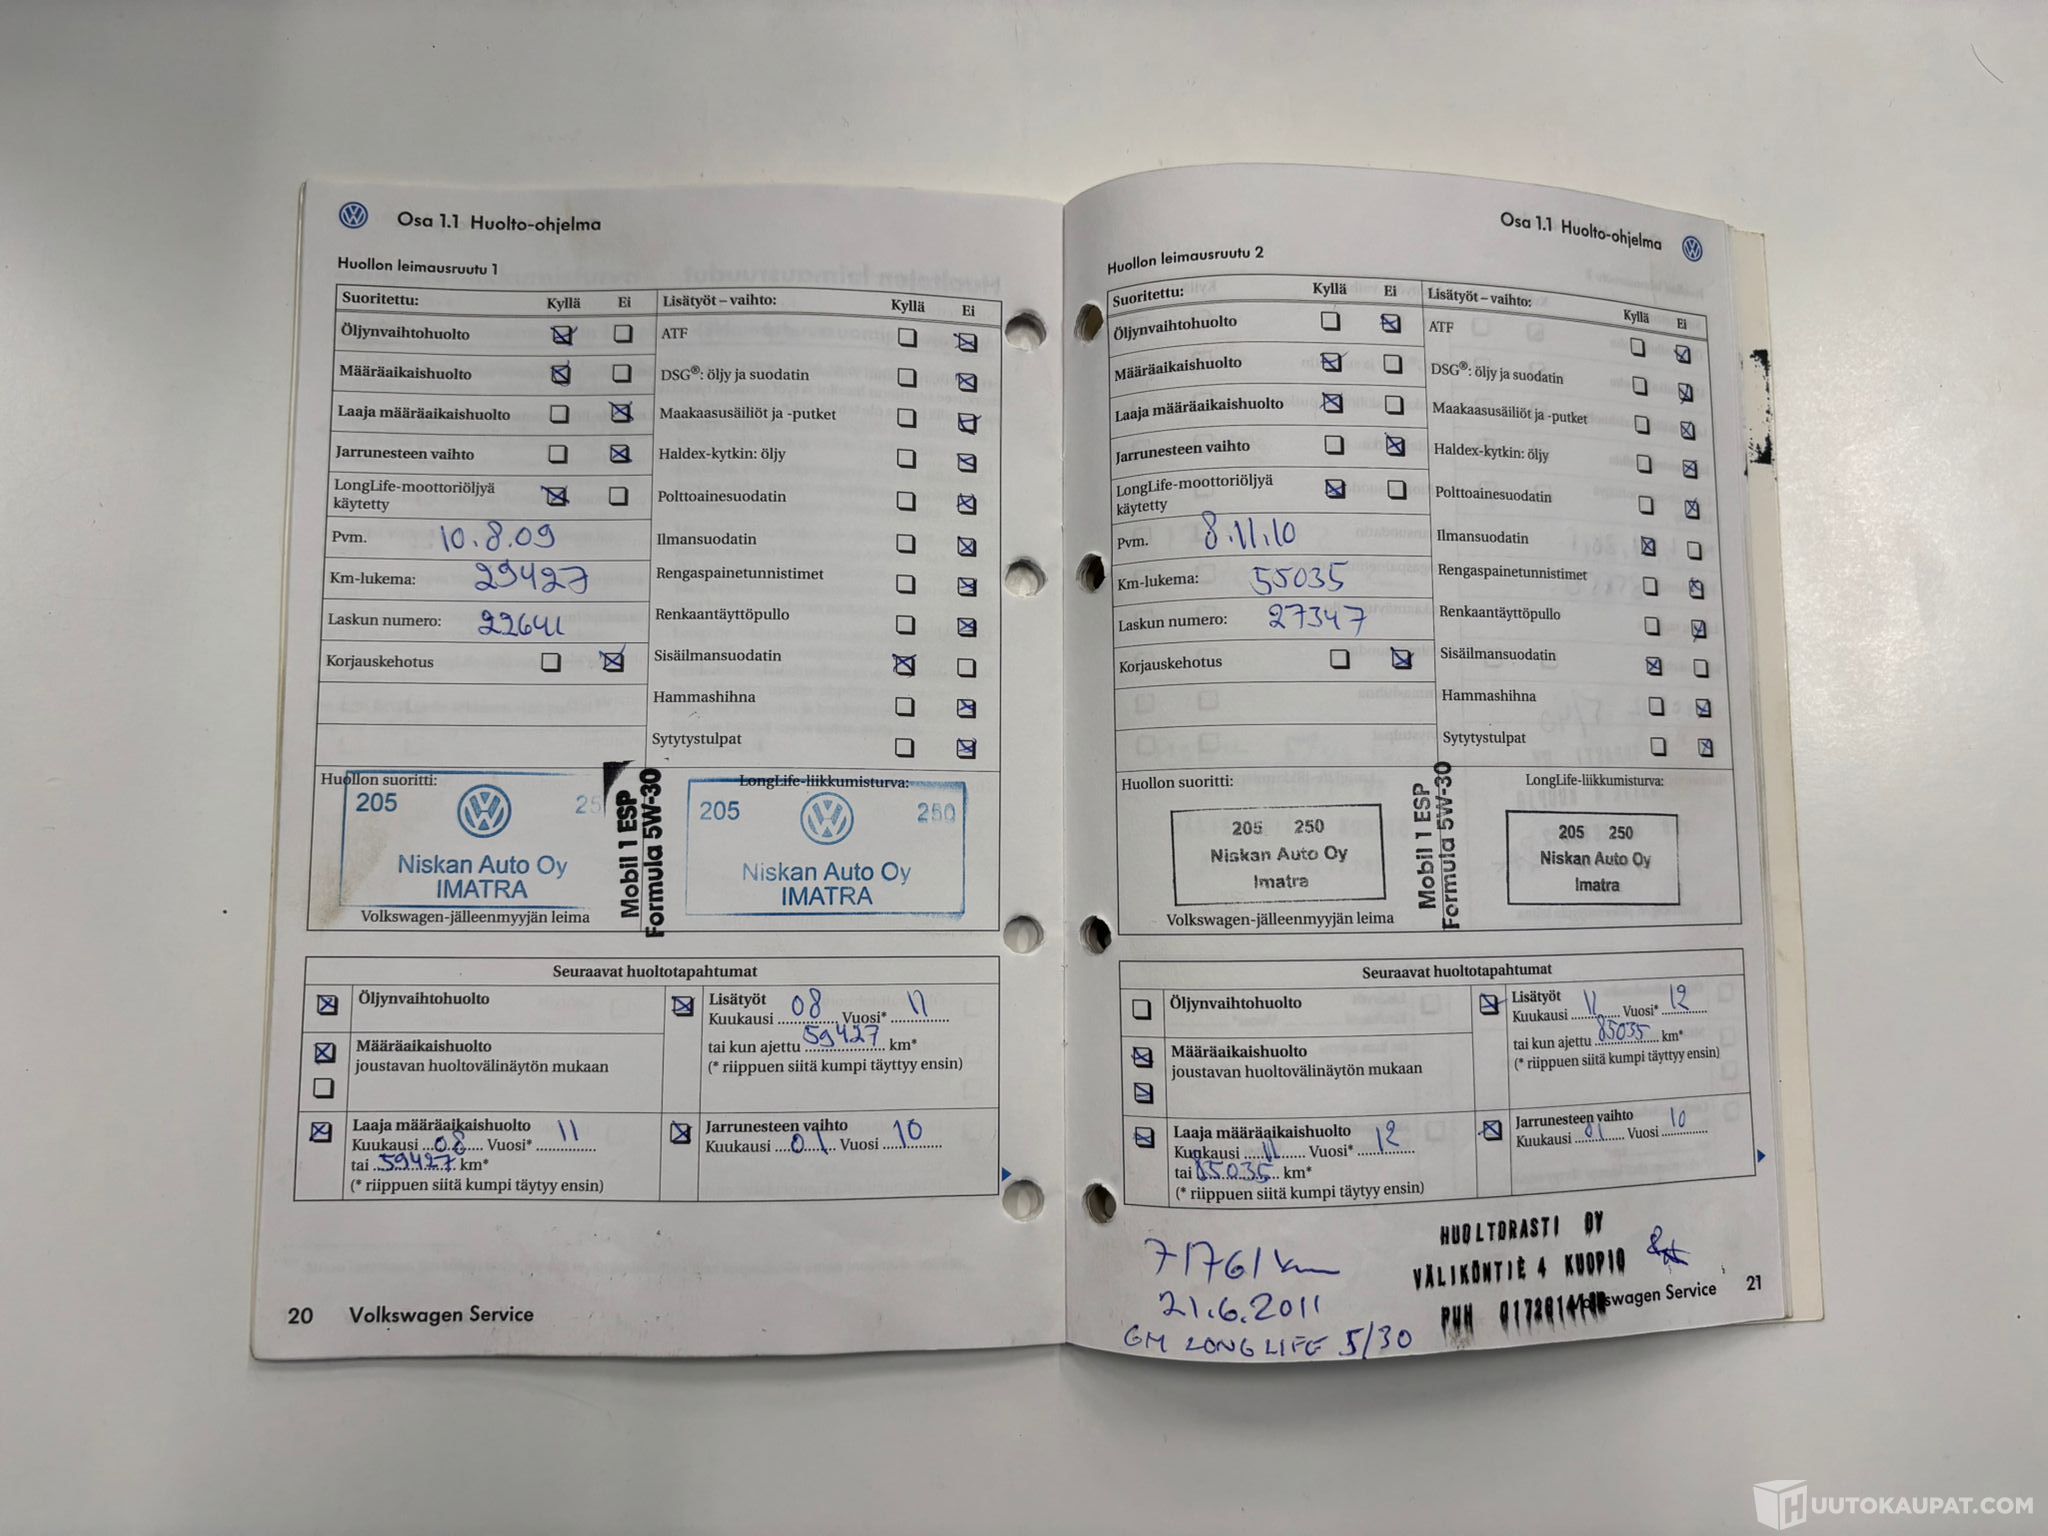 Osa 1.1 Huolto-ohjelma
Huollon leimausruutu 1
Suoritettu: Kyllä Ei
Öljynvaihtohuolto
Määräaikaishuolto
Laaja määräaikaishuolto
Jarrunesteen vaihto
LongLife-moottoriöljyä
käytetty
Pvm. 10.8.09
Km-lukema: 29427
Laskun numero: 22641
Korjauskehotus
Lisätyöt – vaihto: Kyllä Ei
ATF
DSG®: öljy ja suodatin
Maakaasusäiliöt ja -putket
Haldex-kytkin: öljy
Polttoainesuodatin
Ilmansuodatin
Rengaspainetunnistimet
Renkaantäyttöpullo
Sisäilmansuodatin
Hammashihna
Sytytystulpat
Huollon suoritti:
205 250
Niskan Auto Oy
IMATRA
Volkswagen-jälleenmyyjän leima
Mobil 1 ESP
Formula 5W-30
LongLife-liikkumisturva:
205 250
Niskan Auto Oy
IMATRA
Seuraavat huoltotapahtumat
Öljynvaihtohuolto
Määräaikaishuolto
joustavan huoltovälinäytön mukaan
Laaja määräaikaishuolto
Kuukausi 08 Vuosi* 11
tai 59427 km*
(* riippuen siitä kumpi täytyy ensin)
Lisätyöt
Kuukausi 08 Vuosi* 11
tai kun ajettu 59427 km*
(* riippuen siitä kumpi täytyy ensin)
Jarrunesteen vaihto
Kuukausi 01 Vuosi 10
20 Volkswagen Service
Osa 1.1 Huolto-ohjelma
Huollon leimausruutu 2
Suoritettu: Kyllä Ei
Öljynvaihtohuolto
Määräaikaishuolto
Laaja määräaikaishuolto
Jarrunesteen vaihto
LongLife-moottoriöljyä
käytetty
Pvm. 8.11.10
Km-lukema: 55035
Laskun numero: 27347
Korjauskehotus
Lisätyöt – vaihto: Kyllä Ei
ATF
DSG®: öljy ja suodatin
Maakaasusäiliöt ja -putket
Haldex-kytkin: öljy
Polttoainesuodatin
Ilmansuodatin
Rengaspainetunnistimet
Renkaantäyttöpullo
Sisäilmansuodatin
Hammashihna
Sytytystulpat
Huollon suoritti:
205 250
Niskan Auto Oy
Imatra
Volkswagen-jälleenmyyjän leima
Mobil 1 ESP
Formula 5W-30
LongLife-liikkumisturva:
205 250
Niskan Auto Oy
Imatra
Seuraavat huoltotapahtumat
Öljynvaihtohuolto
Määräaikaishuolto
joustavan huoltovälinäytön mukaan
Laaja määräaikaishuolto
Kuukausi 11 Vuosi* 12
tai 85035 km*
(* riippuen siitä kumpi täytyy ensin)
Lisätyöt
Kuukausi 11 Vuosi* 12
tai kun ajettu 85035 km*
(* riippuen siitä kumpi täytyy ensin)
Jarrunesteen vaihto
Kuukausi 01 Vuosi 10
71761 km
21.6.2011
GM LONG LIFE 5/30
HUOLTORASTI OY
VÄLIKÖNTIE 4 KUOPIO
PUH
Volkswagen Service 21
HUUTOKAUPAT.COM